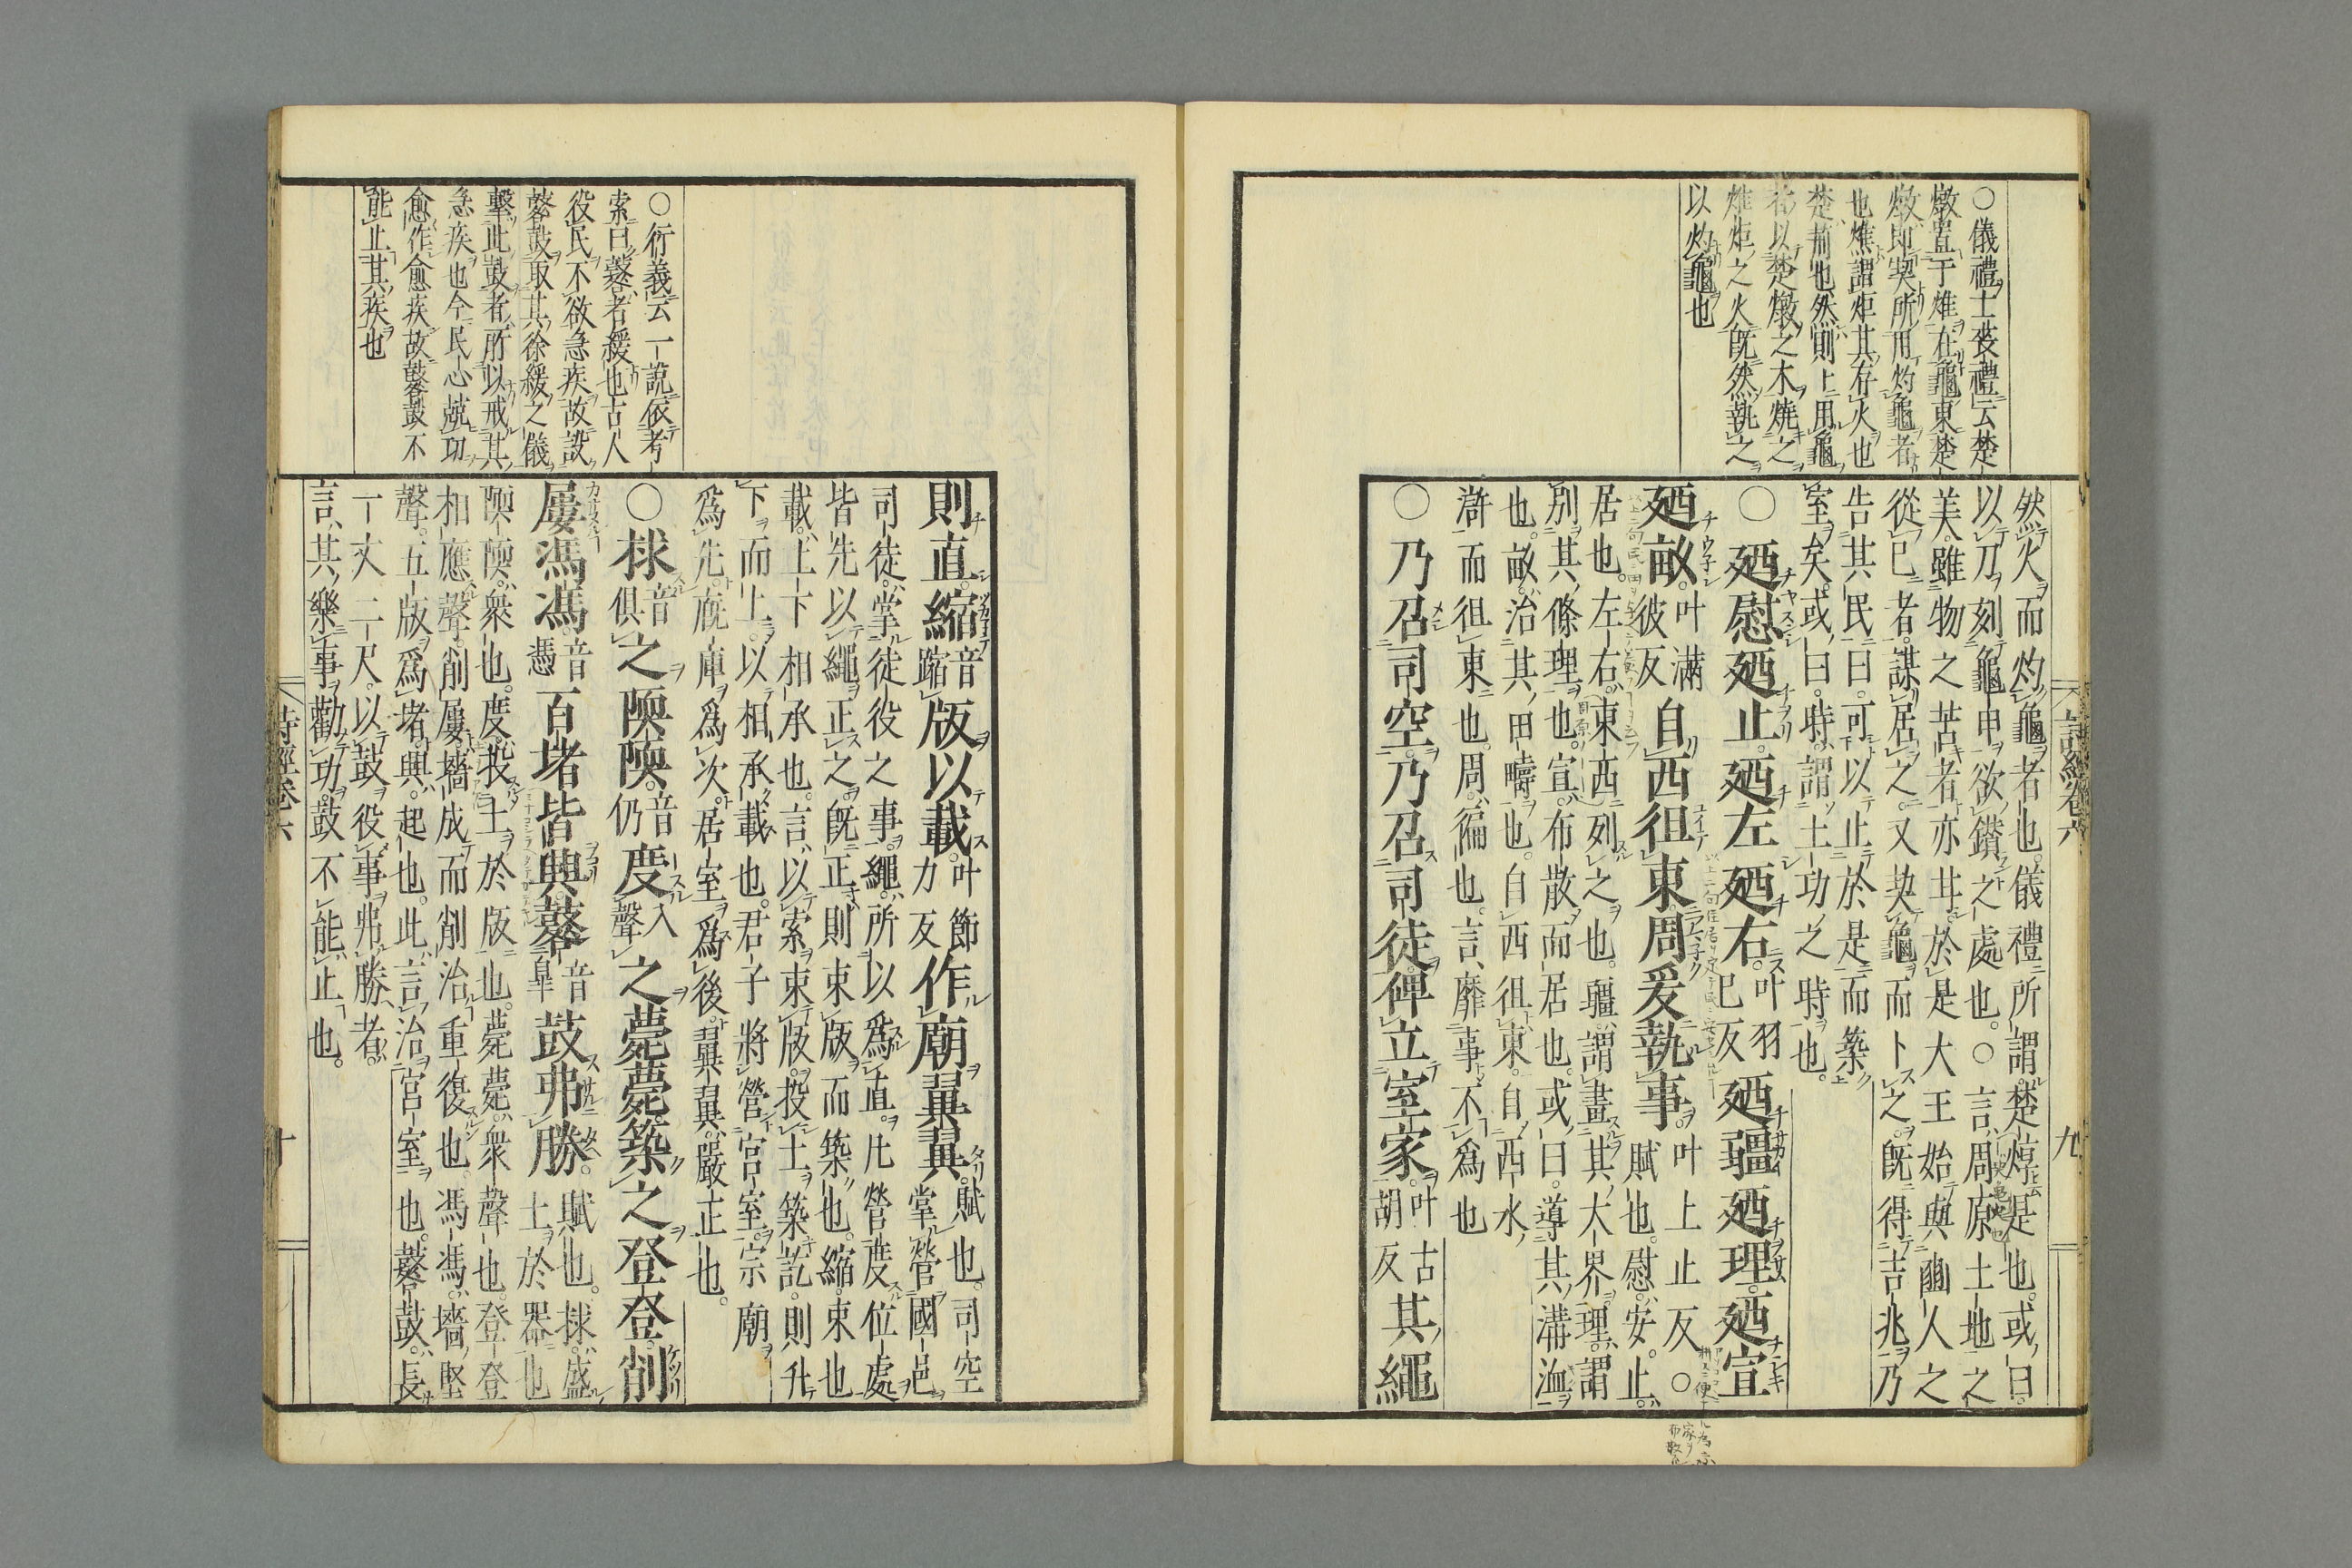 ○儀禮士䘮禮云楚
燉置于燋在龜東楚
燉即契所用灼龜者
也燋謂炬其存火也
楚荊也然則上用龜
者以楚燉之木燒之
燋炬之火既然執之
以灼龜也
然火而灼龜者也。儀禮所謂。楚焞是也。或曰。
以刀刻龜甲欲鑚之處也。○言周原土地之
美。雖物之苦者亦甘。於是大王始與豳人之
從已者。謀居之。又契龜而卜之。既得吉兆。乃
告其民曰。可以止於是而築
室矣。或曰。時謂土功之時也。
○廼慰廼止。廼左廼右。叶羽已反廼疆廼理。廼宣
廼畝。叶滿彼反自西徂東周爰執事。叶上止反○賦也。慰。安。止。
居也。左右。東西列之也。疆。謂畫其大界。理。謂
別其條理也。宣。布散而居也。或曰。導其溝洫
也。畝。治其田疇也。自西徂東。自西水
滸而徂東也。周。徧也。言靡事不爲也
○乃召司空。乃召司徒。俾立室家。叶古胡反其繩
詩經卷六
九
○衍義云一說依考
索曰鼛者緩也古人
役民不欲急疾故設
鼛鼓取其徐緩之儀
擊此鼓者所以戒其
急疾也今民心競功
愈作愈疾故鼛鼓不
能止其疾也
則直。縮音蹜版以載。叶節力反作廟翼翼。賦也。司空掌營國邑
司徒。掌徒役之事。繩。所以爲直。凡營度位處
皆先以繩正之。既正則束版而築也。縮。束也
載。上下相承也。言以索束版。投土築訖。則升
下而上。以相承載也。君子將營宮室。宗廟
爲先。廐庫爲次。居室爲後。翼翼。嚴正也。
○捄音俱之陾陾。音仍度入聲之薨薨。築之登登。削
屢馮馮。音憑百堵皆興。鼛音皐鼓弗勝。賦也。捄。盛土於器也
陾陾。衆也。度。投土於版也。薨薨。衆聲也。登登
相應聲。削屢。墻成而削治重復也。馮馮。墻堅
聲。五版爲堵。興。起也。此言治宮室也。鼛鼓。長
一丈二尺。以鼓役事弗勝者。
言其樂事勸功。鼓不能止也。
詩經卷六
十